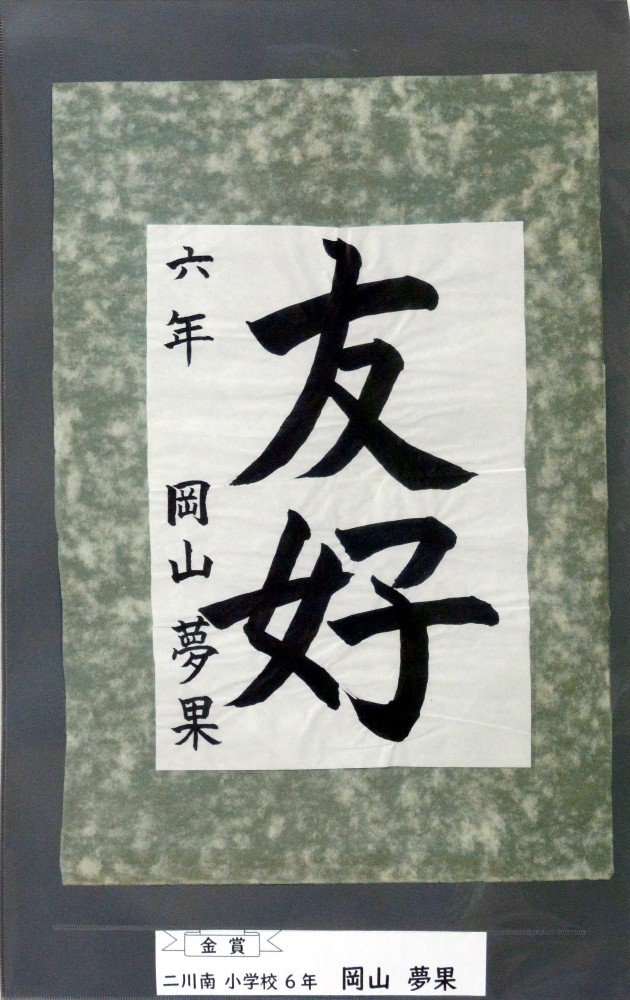 友好
六年 岡山夢果
金賞
二川南 小学校 6年 岡山 夢果